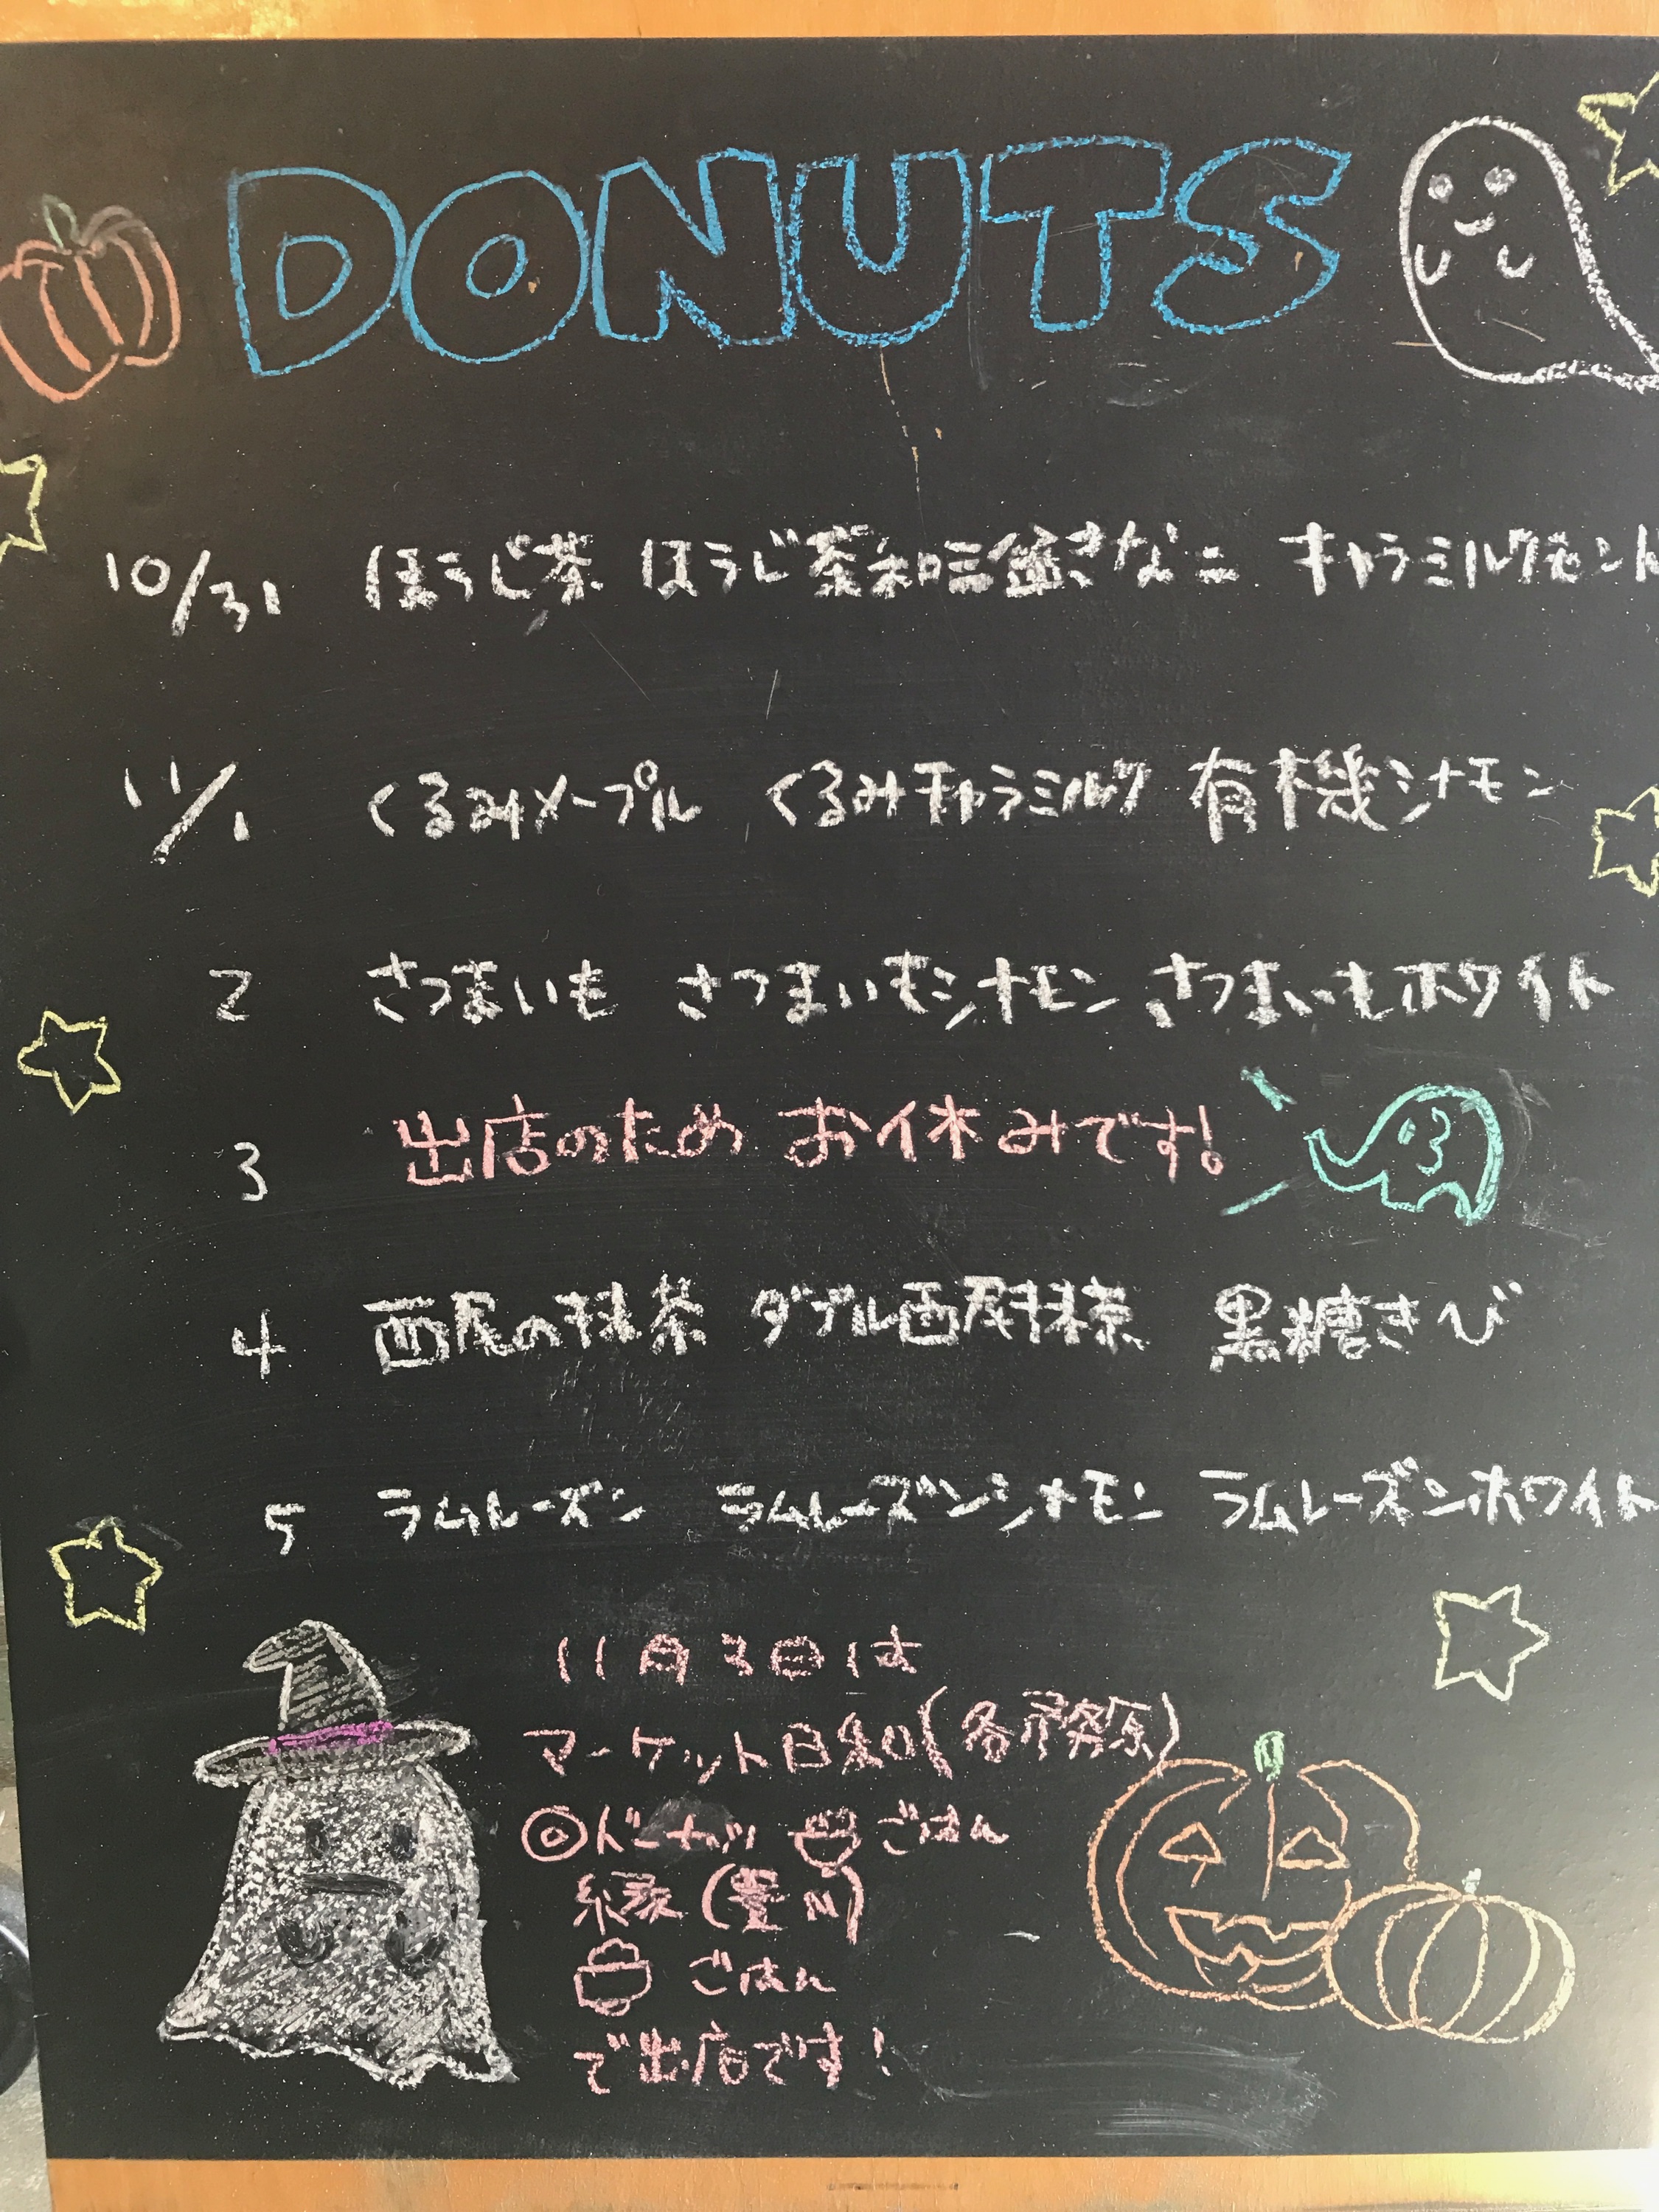 DONUTS
10/31 ほうじ茶 ほうじ茶和三盆きなこ キャラミルクモンド
11/1 くるみメープル くるみキャラミルク 有機シナモン
2 さつまいも さつまいもシナモン さつまいもホワイト
3 出店のため お休みです!
4 西尾の抹茶 ダブル西尾抹茶 黒糖きび
5 ラムレーズン ラムレーズンシナモン ラムレーズンホワイト
11月3日は
マーケット日和(各務原)
ドーナツ ごはん
縁(豊川)
ごはん
で出店です!